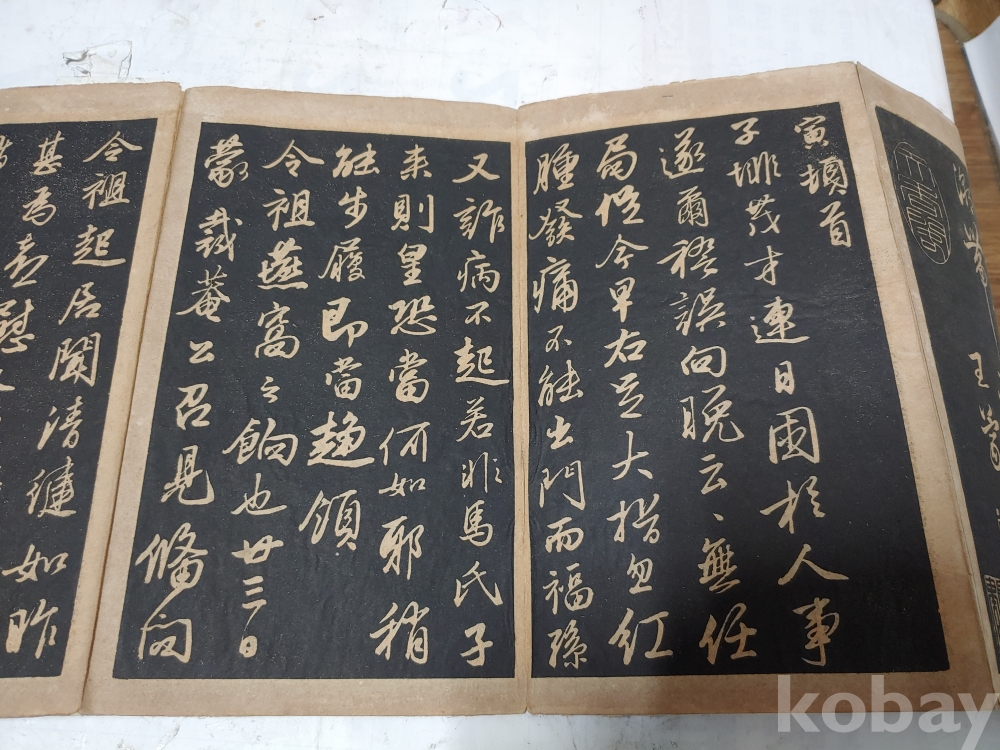 王蒙
寅頓首
子排茂才連日困於人事
遂爾謬誤向晚云〻無任
局促今早右足大指忽紅
腫發痛不能出門而福孫
又詐病不起若非馬氏子
来則皇恐當何如耶稍
能步履即當趨領
令祖燕窩之餉也廿三日
蒙誠菴公召見脩問
令祖起居聞清健如昨
甚為喜慰
kobay